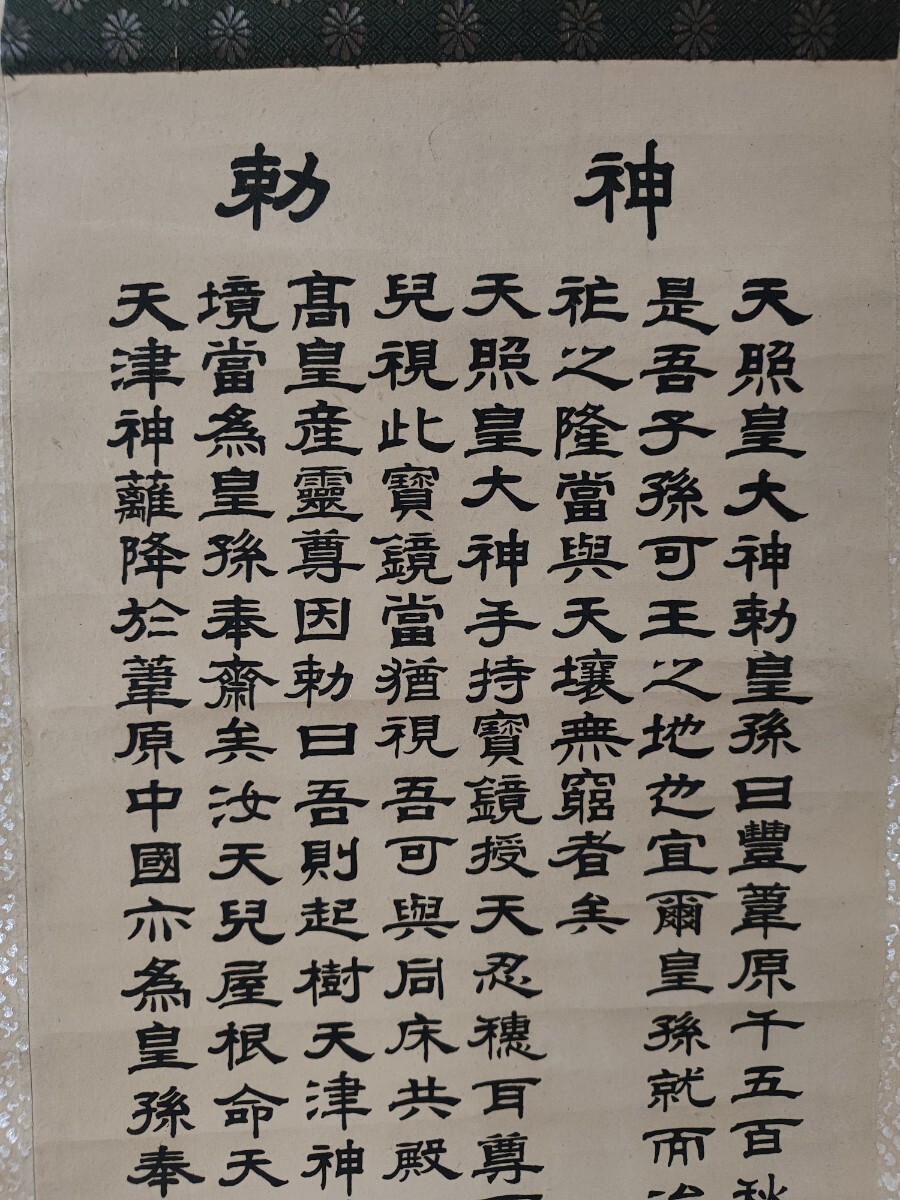 神勅
天照皇大神勅皇孫曰豐葦原千五百秋
是吾子孫可王之地也宜爾皇孫就而治
祚之隆當與天壤無窮者矣
天照皇大神手持寶鏡授天忍穗耳尊
兒視此寶鏡當猶視吾可與同床共殿
高皇産靈尊因勅曰吾則起樹天津神
境當為皇孫奉齋矣汝天兒屋根命天
天津神蘺降於葦原中國亦為皇孫奉